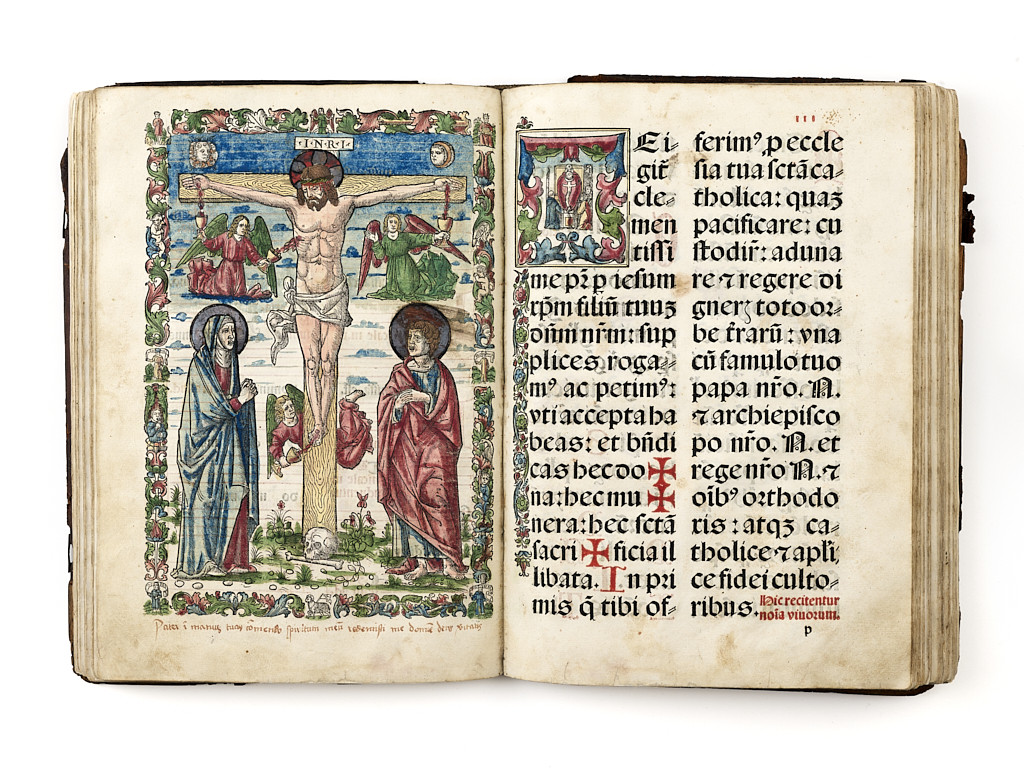 ·I·N·R·I·
Pater ĩ manus tuas cõmendo spiritum meũ redemisti me domine deus veritatis
TEi⸗
git̃
cle⸗
men
tissi
me pr̃ p iesum
xp̃m filiũ tuuʒ
dñm nr̃m : sup
plices roga⸗
mꝰ ac petimꝰ:
vti accepta ha
beas: et bñdi
cas hec do ✠
na: hec mu ✠
nera: hec sctã
sacri ✠ ficia il
libata. In pri
mis q̃ tibi of⸗
ferimꝰ ꝓ eccle
sia tua sctã ca⸗
tholica: quaʒ
pacificare: cu
stodir̃: aduna
re ⁊ regere di
gner̃ toto or⸗
be t̃rarũ : vna
cũ famulo tuo
papa nr̃o. N.
⁊ archiepisco
po nr̃o. N. et
rege nr̃o N. ⁊
oĩbꝰ orthodo
xis : atqʒ ca⸗
tholice ⁊ apli⸗
ce fidei culto⸗
ribus. Hic recitentur
noĩa viuorum.
p